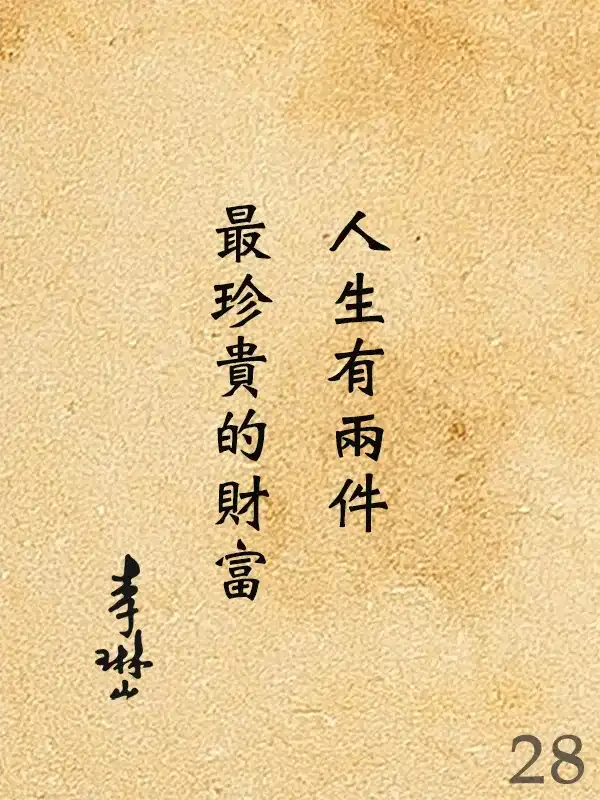 人生有兩件
最珍貴的財富
李琳山
28